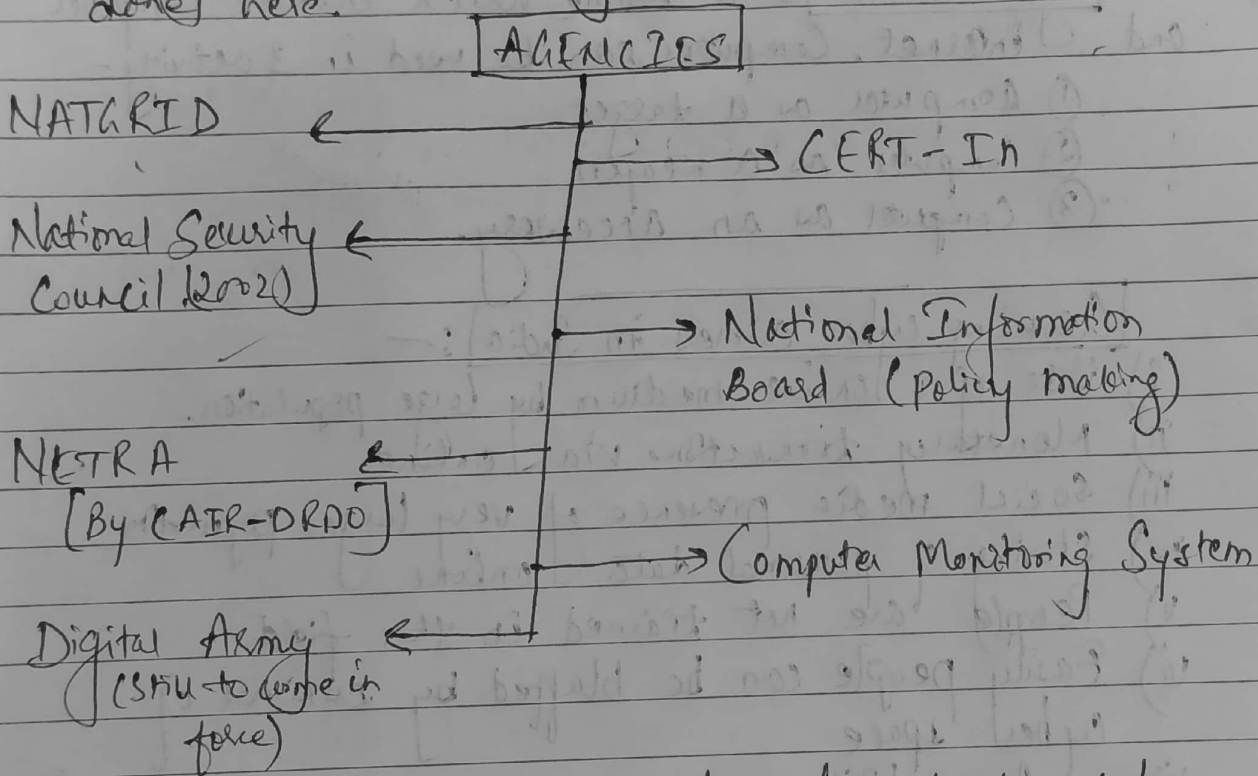 done) here.
AGENCIES
NATGRID
CERT-In
National Security
Council (2002)
National Information
Board (policy making)
NETRA
[By CAIR-DRDO]
Computer Monitoring System
Digital Army
(still to come in
force)